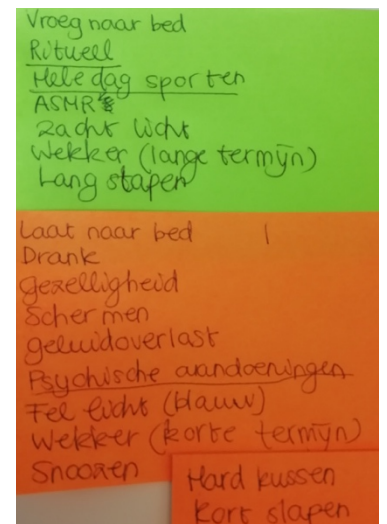 Vroeg naar bed
Ritueel
Hele dag sporten
ASMR
Zacht licht
Wekker (lange termijn)
Lang slapen
Laat naar bed
Drank
Gezelligheid
Schermen
geluidoverlast
Psychische aandoeningen
Fel licht (blauw)
Wekker (korte termijn)
Snoozen
Hard kussen
Kort slapen